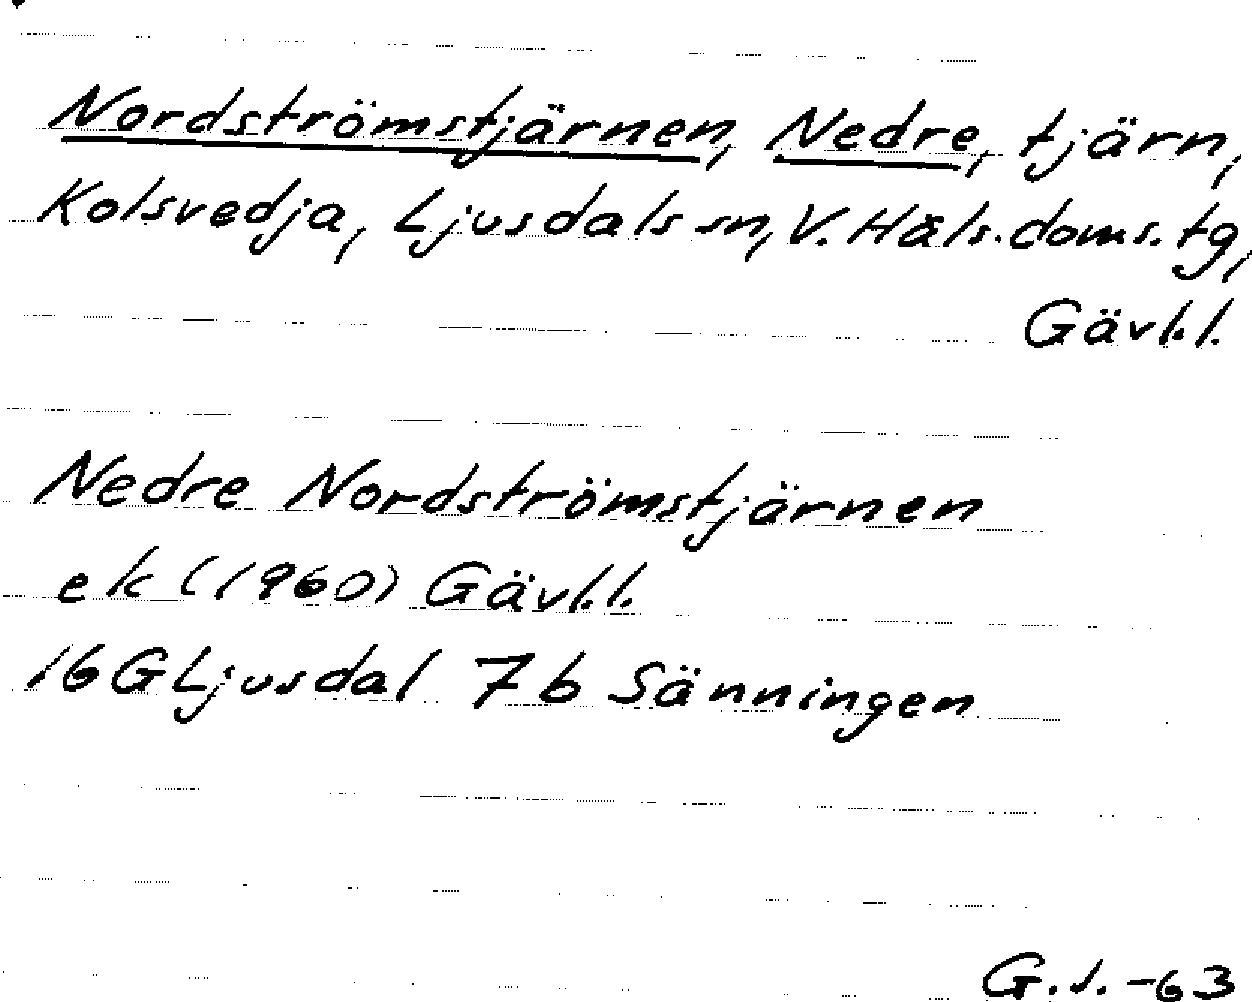 Nordströmstjärnen, Nedre, tjärn,
Kolsvedja, Ljusdals sn, V. Häls. doms. tg,
Gävl.l.
Nedre Nordströmstjärnen
ek (1960) Gävl.l.
16 G Ljusdal 7b Sänningen
G.J. -63